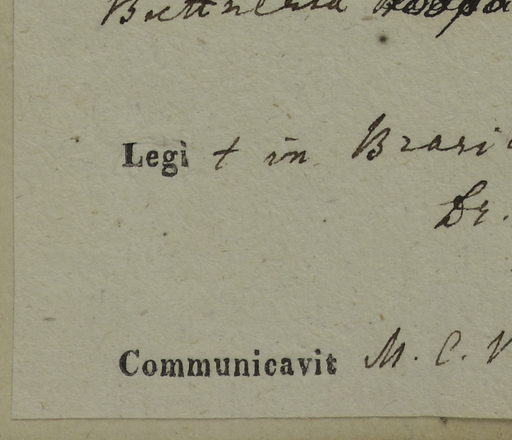 Buttneria
Legi + in Brasi
Dr.
Communicavit M. C. V